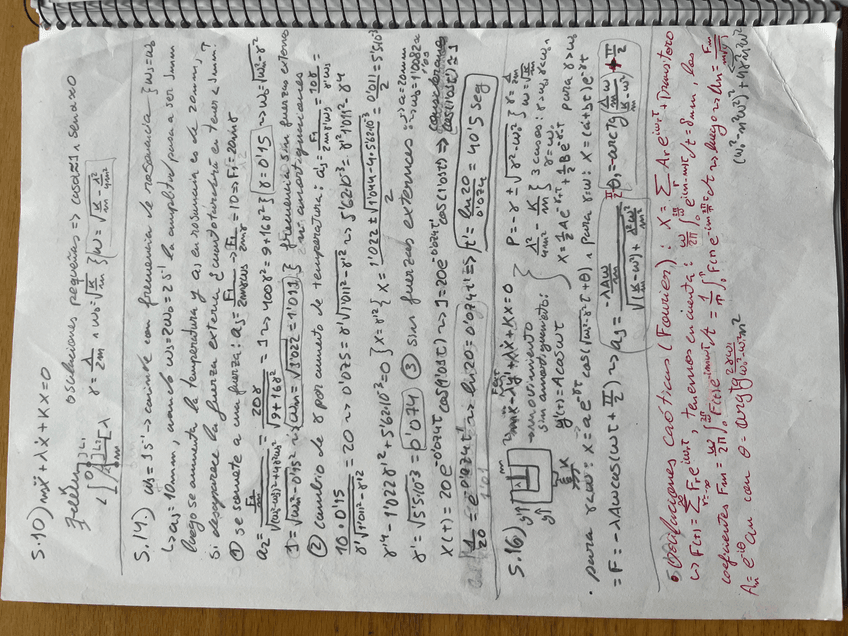 5.10) mẍ + λẋ + Kx = 0
oscilaciones pequeñas => cosα≈1 ∧ senα≈0
γ = λ/2m ∧ ω₀ = √K/m } ω = √(K/m - λ²/4m²)
5.14.) ω₁ = 1s⁻¹ → coincide con frecuencia de resonancia { ω₁ = ω₀
↳ a₁ = 10mm, cuando ω₂ = 2ω₀ = 2s⁻¹ la amplitud pasa a ser 1mm
luego se aumenta la temperatura y a₁ en resonancia es de 20mm,
si desaparece la fuerza externa, ¿cuánto tardará en tener < 1mm?
① se somete a una fuerza: a₁ = F₁/2mγω₁ → F₁/2mγ = 10 => F₁ = 20mγ
a₂ = (F₁/m)/√((ω₀²-ω₂²)²+4γ²ω₂²) = 20γ/√(9+16γ²) = 1 ⇝ 400γ² = 9+16γ² { γ = 0'15 } → ω₀ = √(ω₁²-γ²)
1 = √(ω₀²-0'15²) ⇝ ω₀ = √1'022 = 1'011 } frecuencia sin fuerzas externas ni amortiguaciones
② cambio de γ por aumento de temperatura: a₁ = F₁/2mγ'ω₁ = 10γ/γ'ω₁ =
10·0'15/γ'√(1'011²-γ'²) = 20 ⇝ 0'075 = γ'√(1'011²-γ'²) ⇝ 5'62·10⁻³ = γ'²1'011² - γ'⁴
γ'⁴ - 1'022γ'² + 5'62·10⁻³ = 0 { x = γ'² { x = (1'022 ± √(1'044-4·5'62·10⁻³))/2 = 0'011/2 = 5'5·10⁻³
γ' = √5'5·10⁻³ = 0'074 ③ sin fuerzas externas: → a = 20mm ω = 1'0082
x(t) = 20e⁻⁰'⁰⁷⁴ᵗ cos(1'05t) ⇝ 1 = 20e⁻⁰'⁰⁷⁴ᵗ cos(1'05t) => cos(1'05t) ≈ 1
1/20 = e⁻⁰'⁰⁷⁴ᵗ' ⇝ ln 20 = 0'074t' => t' = ln20/0'074 = 40'5 seg
5.16) mẍ + λẋ + Kx = 0
→ movimiento sin amortiguamiento:
y(t) = A cos ωt
P = -γ ± √(γ²-ω₀²) { γ = λ/2m ω = √K/m
λ²/4m² - K/m } 3 casos: γ > ω₀, γ < ω₀ γ = ω₀
x = ½Ae^(-γ₁t) + ½Be^(-γ₂t) para γ > ω₀
• para γ < ω: x = ae^(-γt) cos(√(ω²-γ²)t + θ) ∧ para γ = ω: x = (a+bt)e^(-γt)
= F = -λAω cos(ωt + π/2) ⇝ a₁ = -λAω/m/√((K/m-ω²)²+λ²ω²/m²) θ₁ = -arctg((λ/m)ω/(K/m-ω²)) + π/2
• Oscilaciones caóticas (Fourier): x = Σ Aᵣe^(iωᵣt) + transitorio
↳ F(t) = Σ Fᵣe^(iωᵣt), tenemos en cuenta: ω/2π ∫₀ e^(i(n-m)ωt) dt = δnm, los
coeficientes Fm = ω/2π ∫₀ F(t)e^(-imωt) dt = 1/π ∫₀ F(t) e^(-imt) dt ⇝ luego ⇝ an = Fm/m
An = e^(-iθ) an con θ = arctg 2γω₁/(ω₀²-ω²n²) (ω₀²-n²ω²)²+4γ²n²ω²